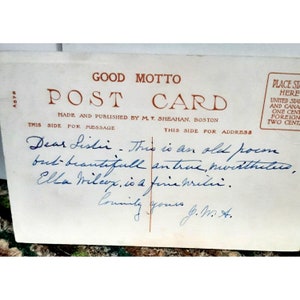 GOOD MOTTO
POST CARD
MADE AND PUBLISHED BY M. T. SHEAHAN, BOSTON
THIS SIDE FOR MESSAGE
THIS SIDE FOR ADDRESS
PLACE
HERE
UNITED
AND CANA
ONE CENT
FOREIGN
TWO CENT
Dear Sister - This is an old poem
but beautifull an true, nevertheless,
Ella Wilcox, is a fine writer.
yours